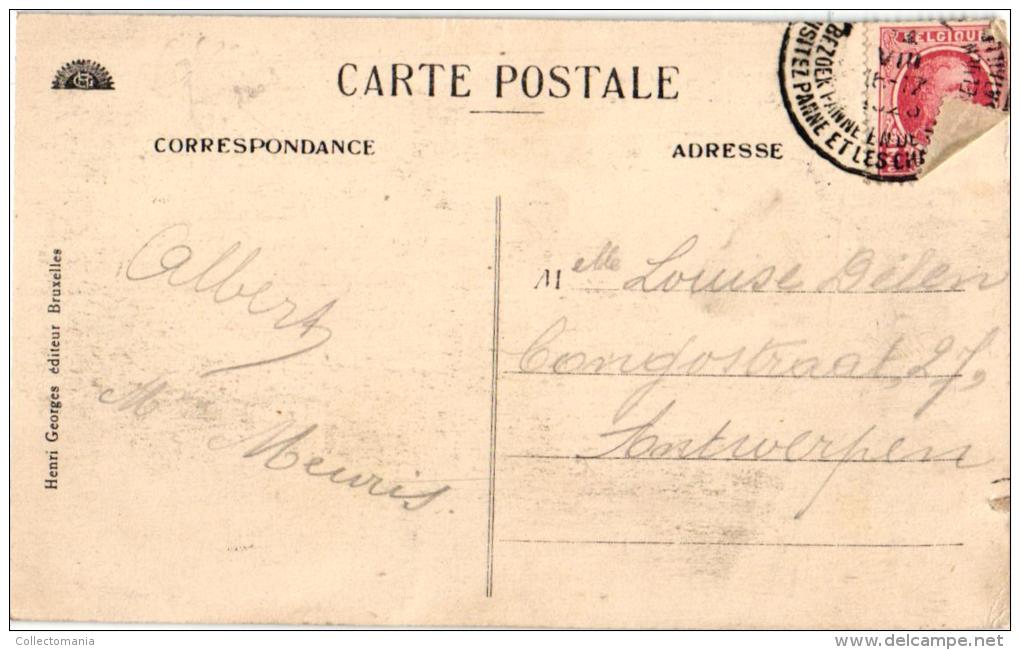 CARTE POSTALE
CORRESPONDANCE
ADRESSE
BELGIQUE
VIII
BEZOEK PANNE EN DE
VISITEZ PANNE ET LES
Henri Georges éditeur Bruxelles
Albert
Mme
Meuris.
Melle Louise Belen
Congostraat, 27,
Antwerpen
Collectomania
delcampe.net